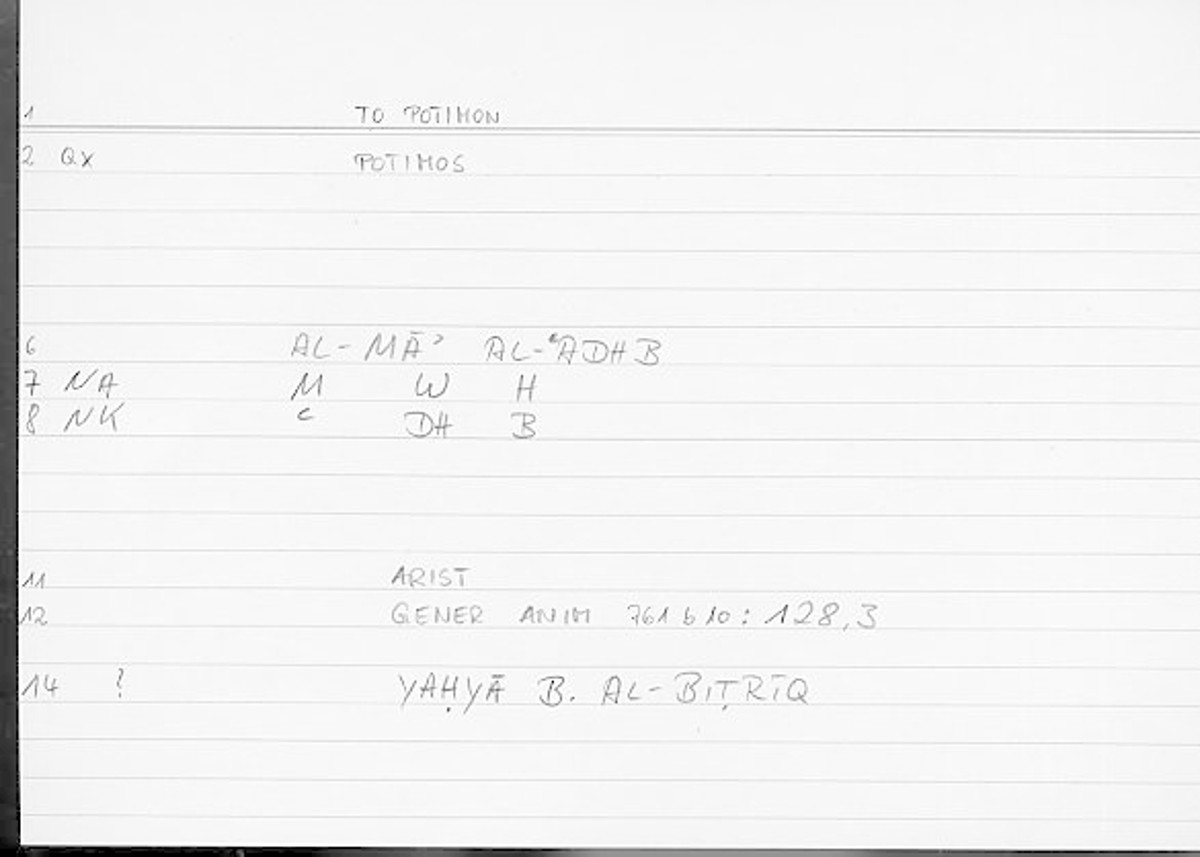 1 TO POTIMON
2 QX POTIMOS
6 AL-MĀʾ AL-ʿADHB
7 NA M W H
8 NK ʿ DH B
11 ARIST
12 GENER ANIM 761 b 10: 128,3
14 ? YAḤYĀ B. AL-BIṬRĪQ